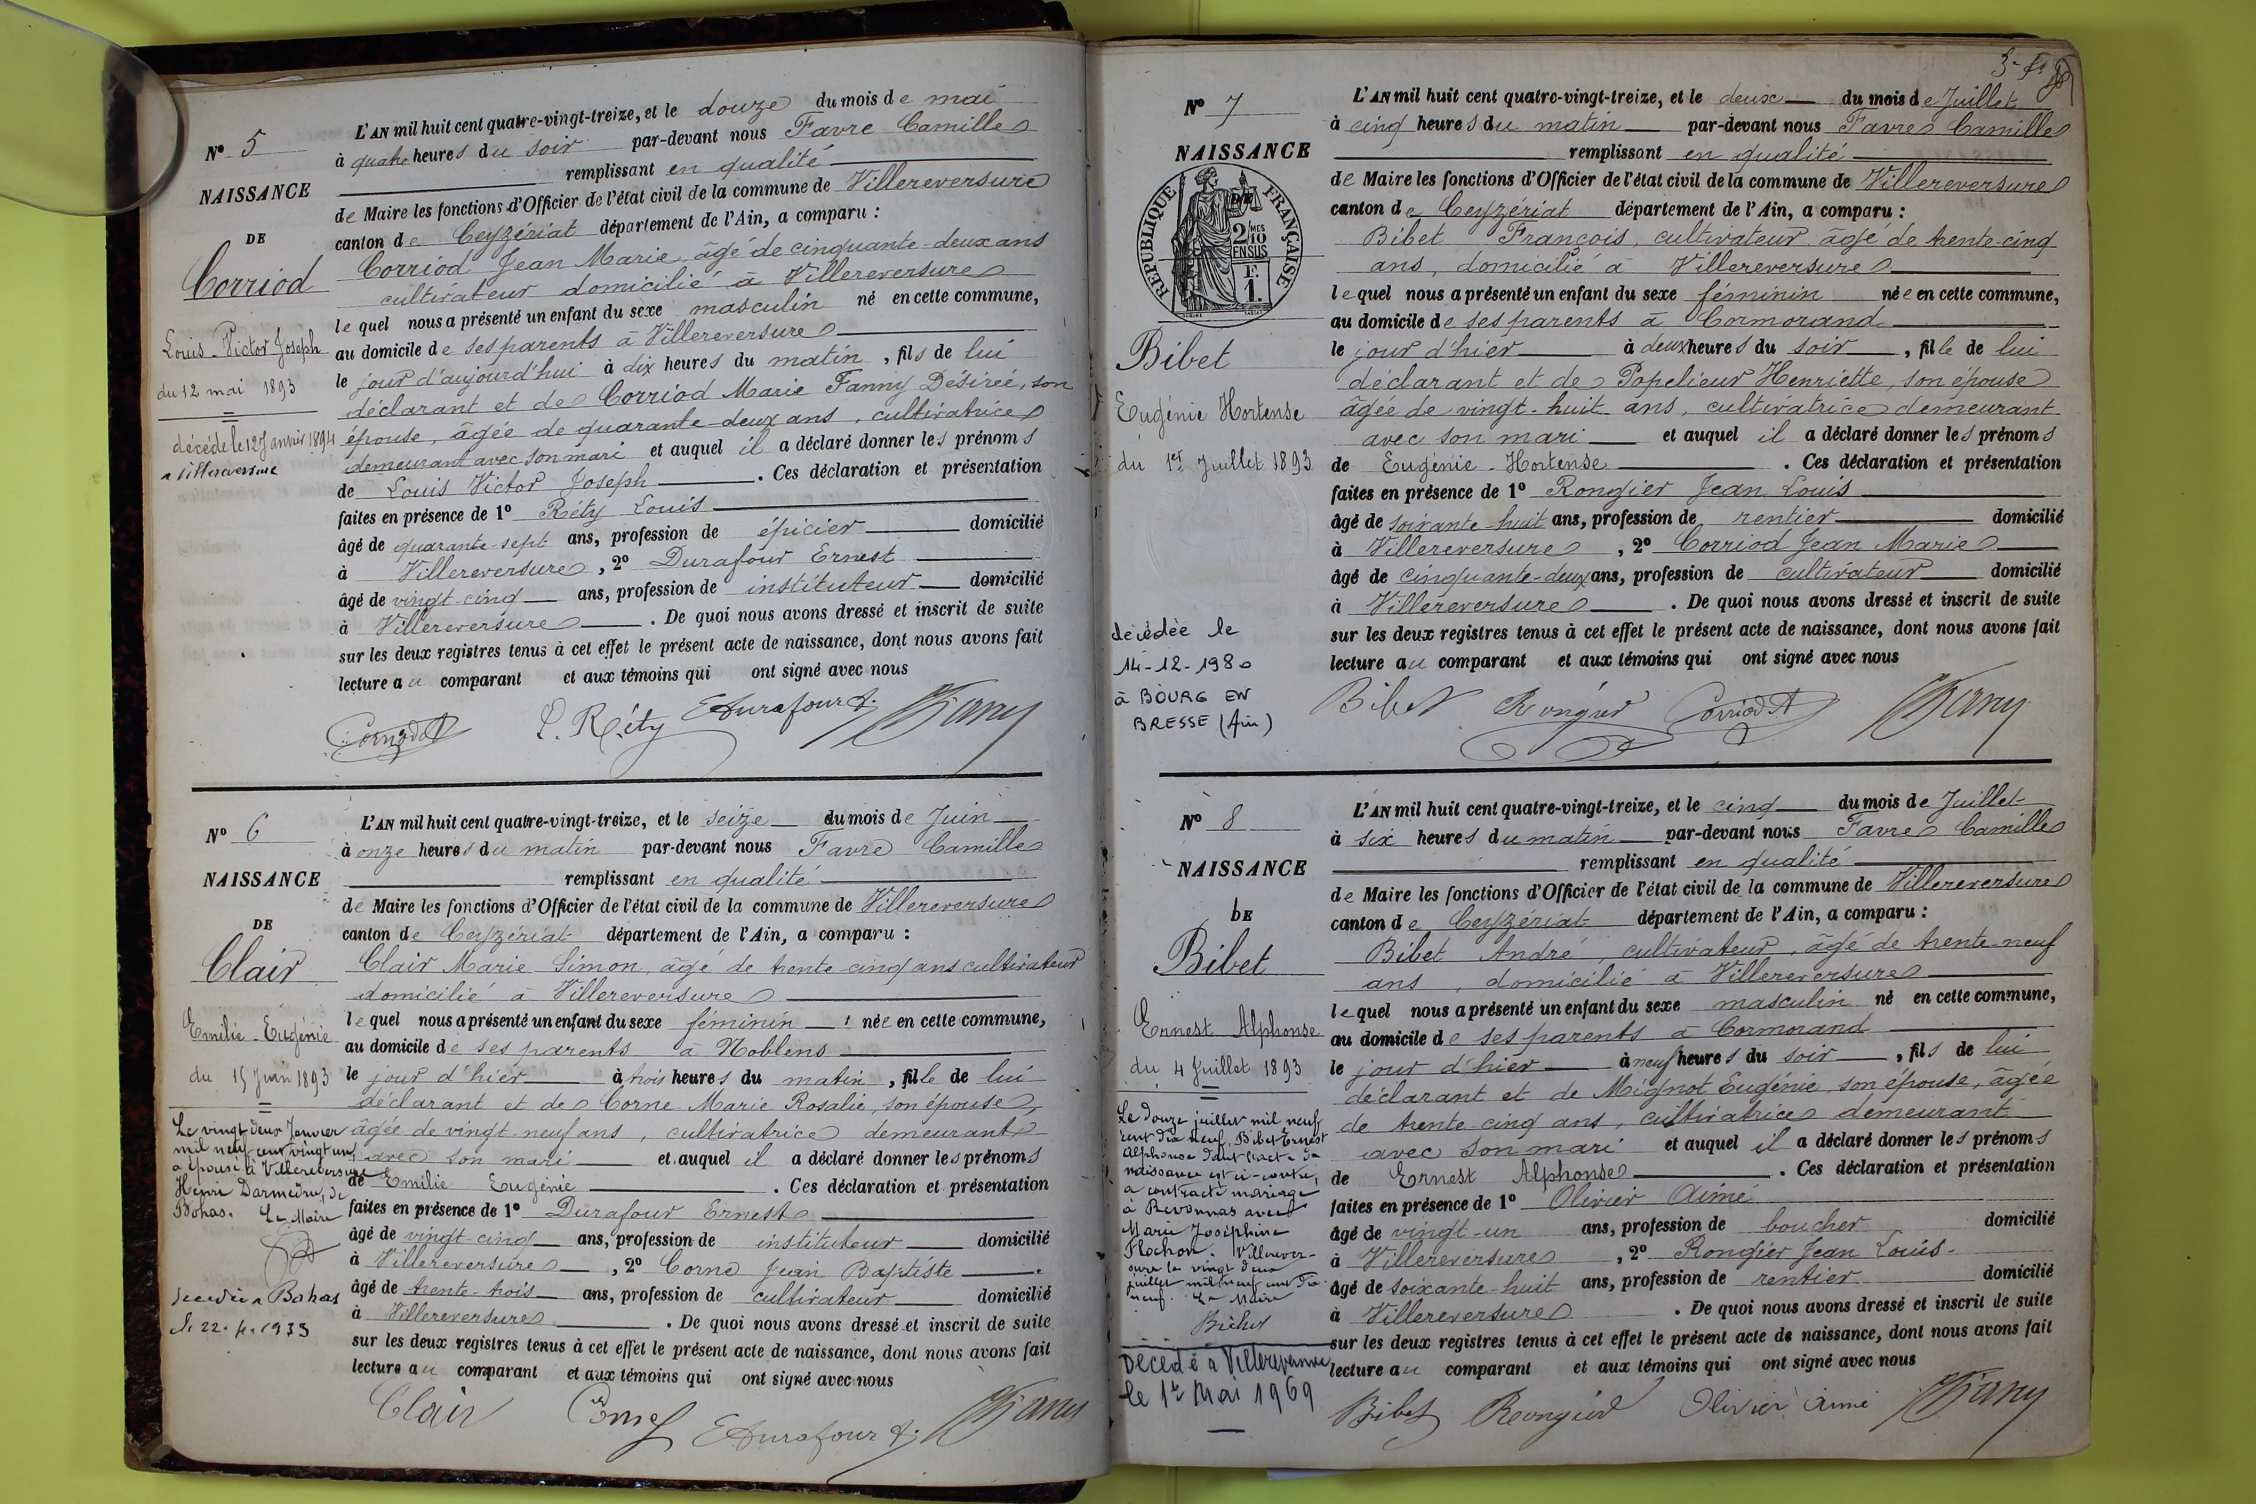 N° 5
NAISSANCE
DE
Corriod
Louis-Victor Joseph
du 12 mai 1893
décédé le 12 Janvier 1894
a Villereversure
L'AN mil huit cent quatre-vingt-treize, et le douze du mois de mai
à quatre heures du soir par-devant nous Favre Camille
remplissant en qualité
de Maire les fonctions d'Officier de l'état civil de la commune de Villereversure
canton de Ceyzériat département de l'Ain, a comparu :
Corriod Jean Marie, âgé de cinquante-deux ans
cultivateur domicilié à Villereversure
lequel nous a présenté un enfant du sexe masculin né en cette commune,
au domicile de ses parents à Villereversure
le jour d'aujourd'hui à dix heures du matin, fils de lui
déclarant et de Corriod Marie Fanny Désireé, son
épouse, âgée de quarante-deux ans, cultivatrice
demeurant avec son mari et auquel il a déclaré donner les prénoms
de Louis Victor Joseph. Ces déclaration et présentation
faites en présence de 1° Réty Louis
âgé de quarante-sept ans, profession de épicier domicilié
à Villereversure, 2° Durafour Ernest
âgé de vingt-cinq ans, profession de instituteur domicilié
à Villereversure. De quoi nous avons dressé et inscrit de suite
sur les deux registres tenus à cet effet le présent acte de naissance, dont nous avons fait
lecture au comparant et aux témoins qui ont signé avec nous
L. Réty
N° 6
NAISSANCE
DE
Clair
Emilie-Eugénie
du 15 Juin 1893
Le vingt deux Janvier
mil neuf cent vingt un
a épousé à Villereversure
Henri Darmedru, de
Bohas. Le Maire
décédée a Bohas
le 22.4.1933
L'AN mil huit cent quatre-vingt-treize, et le seize du mois de Juin
à onze heures du matin par-devant nous Favre Camille
remplissant en qualité
de Maire les fonctions d'Officier de l'état civil de la commune de Villereversure
canton de Ceyzériat département de l'Ain, a comparu :
Clair Marie Simon, âgé de trente cinq ans cultivateur
domicilié à Villereversure
lequel nous a présenté un enfant du sexe féminin née en cette commune,
au domicile de ses parents à Noblens
le jour d'hier à trois heures du matin, fille de lui
déclarant et de Corne Marie Rosalie, son épouse,
âgée de vingt-neuf ans, cultivatrice demeurant
avec son mari et auquel il a déclaré donner les prénoms
de Emilie Eugénie. Ces déclaration et présentation
faites en présence de 1° Durafour Ernest
âgé de vingt-cinq ans, profession de instituteur domicilié
à Villereversure, 2° Corne Jean Baptiste
âgé de trente-trois ans, profession de cultivateur domicilié
à Villereversure. De quoi nous avons dressé et inscrit de suite
sur les deux registres tenus à cet effet le présent acte de naissance, dont nous avons fait
lecture au comparant et aux témoins qui ont signé avec nous
Clair
N° 7
NAISSANCE
RÉPUBLIQUE FRANÇAISE
DE
2/10
MES
EN SUS
F.
1.
Bibet
Eugénie Hortense
du 1er Juillet 1893
décédée le
14-12-1980
à BOURG EN
BRESSE (Ain)
L'AN mil huit cent quatre-vingt-treize, et le deux du mois de Juillet
à cinq heures du matin par-devant nous Favre Camille
remplissant en qualité
de Maire les fonctions d'Officier de l'état civil de la commune de Villereversure
canton de Ceyzériat département de l'Ain, a comparu :
Bibet François, cultivateur âgé de trente-cinq
ans, domicilié à Villereversure
lequel nous a présenté un enfant du sexe féminin née en cette commune,
au domicile de ses parents à Cormorand
le jour d'hier à deux heures du soir, fille de lui
déclarant et de Popelieur Henriette, son épouse
âgée de vingt-huit ans, cultivatrice demeurant
avec son mari et auquel il a déclaré donner les prénoms
de Eugénie-Hortense. Ces déclaration et présentation
faites en présence de 1° Rongier Jean Louis
âgé de soixante-huit ans, profession de rentier domicilié
à Villereversure, 2° Corriod Jean Marie
âgé de cinquante-deux ans, profession de cultivateur domicilié
à Villereversure. De quoi nous avons dressé et inscrit de suite
sur les deux registres tenus à cet effet le présent acte de naissance, dont nous avons fait
lecture au comparant et aux témoins qui ont signé avec nous
Bibet
N° 8
NAISSANCE
DE
Bibet
Ernest Alphonse
du 4 Juillet 1893
Le douze juillet mil neuf
cent dix neuf, Bibet Ernest
Alphonse dont l'acte de
naissance est ci-contre,
a contracté mariage
à Revonnas avec
Marie Joséphine
Flochon. Villerever-
sure le vingt deux
juillet mil neuf cent dix
neuf. Le Maire
Décédé à Villereversure
le 1er Mai 1969
L'AN mil huit cent quatre-vingt-treize, et le cinq du mois de Juillet
à six heures du matin par-devant nous Favre Camille
remplissant en qualité
de Maire les fonctions d'Officier de l'état civil de la commune de Villereversure
canton de Ceyzériat département de l'Ain, a comparu :
Bibet André, cultivateur, âgé de trente-neuf
ans, domicilié à Villereversure
lequel nous a présenté un enfant du sexe masculin né en cette commune,
au domicile de ses parents à Cormorand
le jour d'hier à neuf heures du soir, fils de lui
déclarant et de Mignot Eugénie, son épouse, âgée
de trente-cinq ans, cultivatrice demeurant
avec son mari et auquel il a déclaré donner les prénoms
de Ernest Alphonse. Ces déclaration et présentation
faites en présence de 1° Olivier Aimé
âgé de vingt-un ans, profession de boucher domicilié
à Villereversure, 2° Rongier Jean Louis
âgé de soixante-huit ans, profession de rentier domicilié
à Villereversure. De quoi nous avons dressé et inscrit de suite
sur les deux registres tenus à cet effet le présent acte de naissance, dont nous avons fait
lecture au comparant et aux témoins qui ont signé avec nous
Bibet Rongier Olivier Aimé